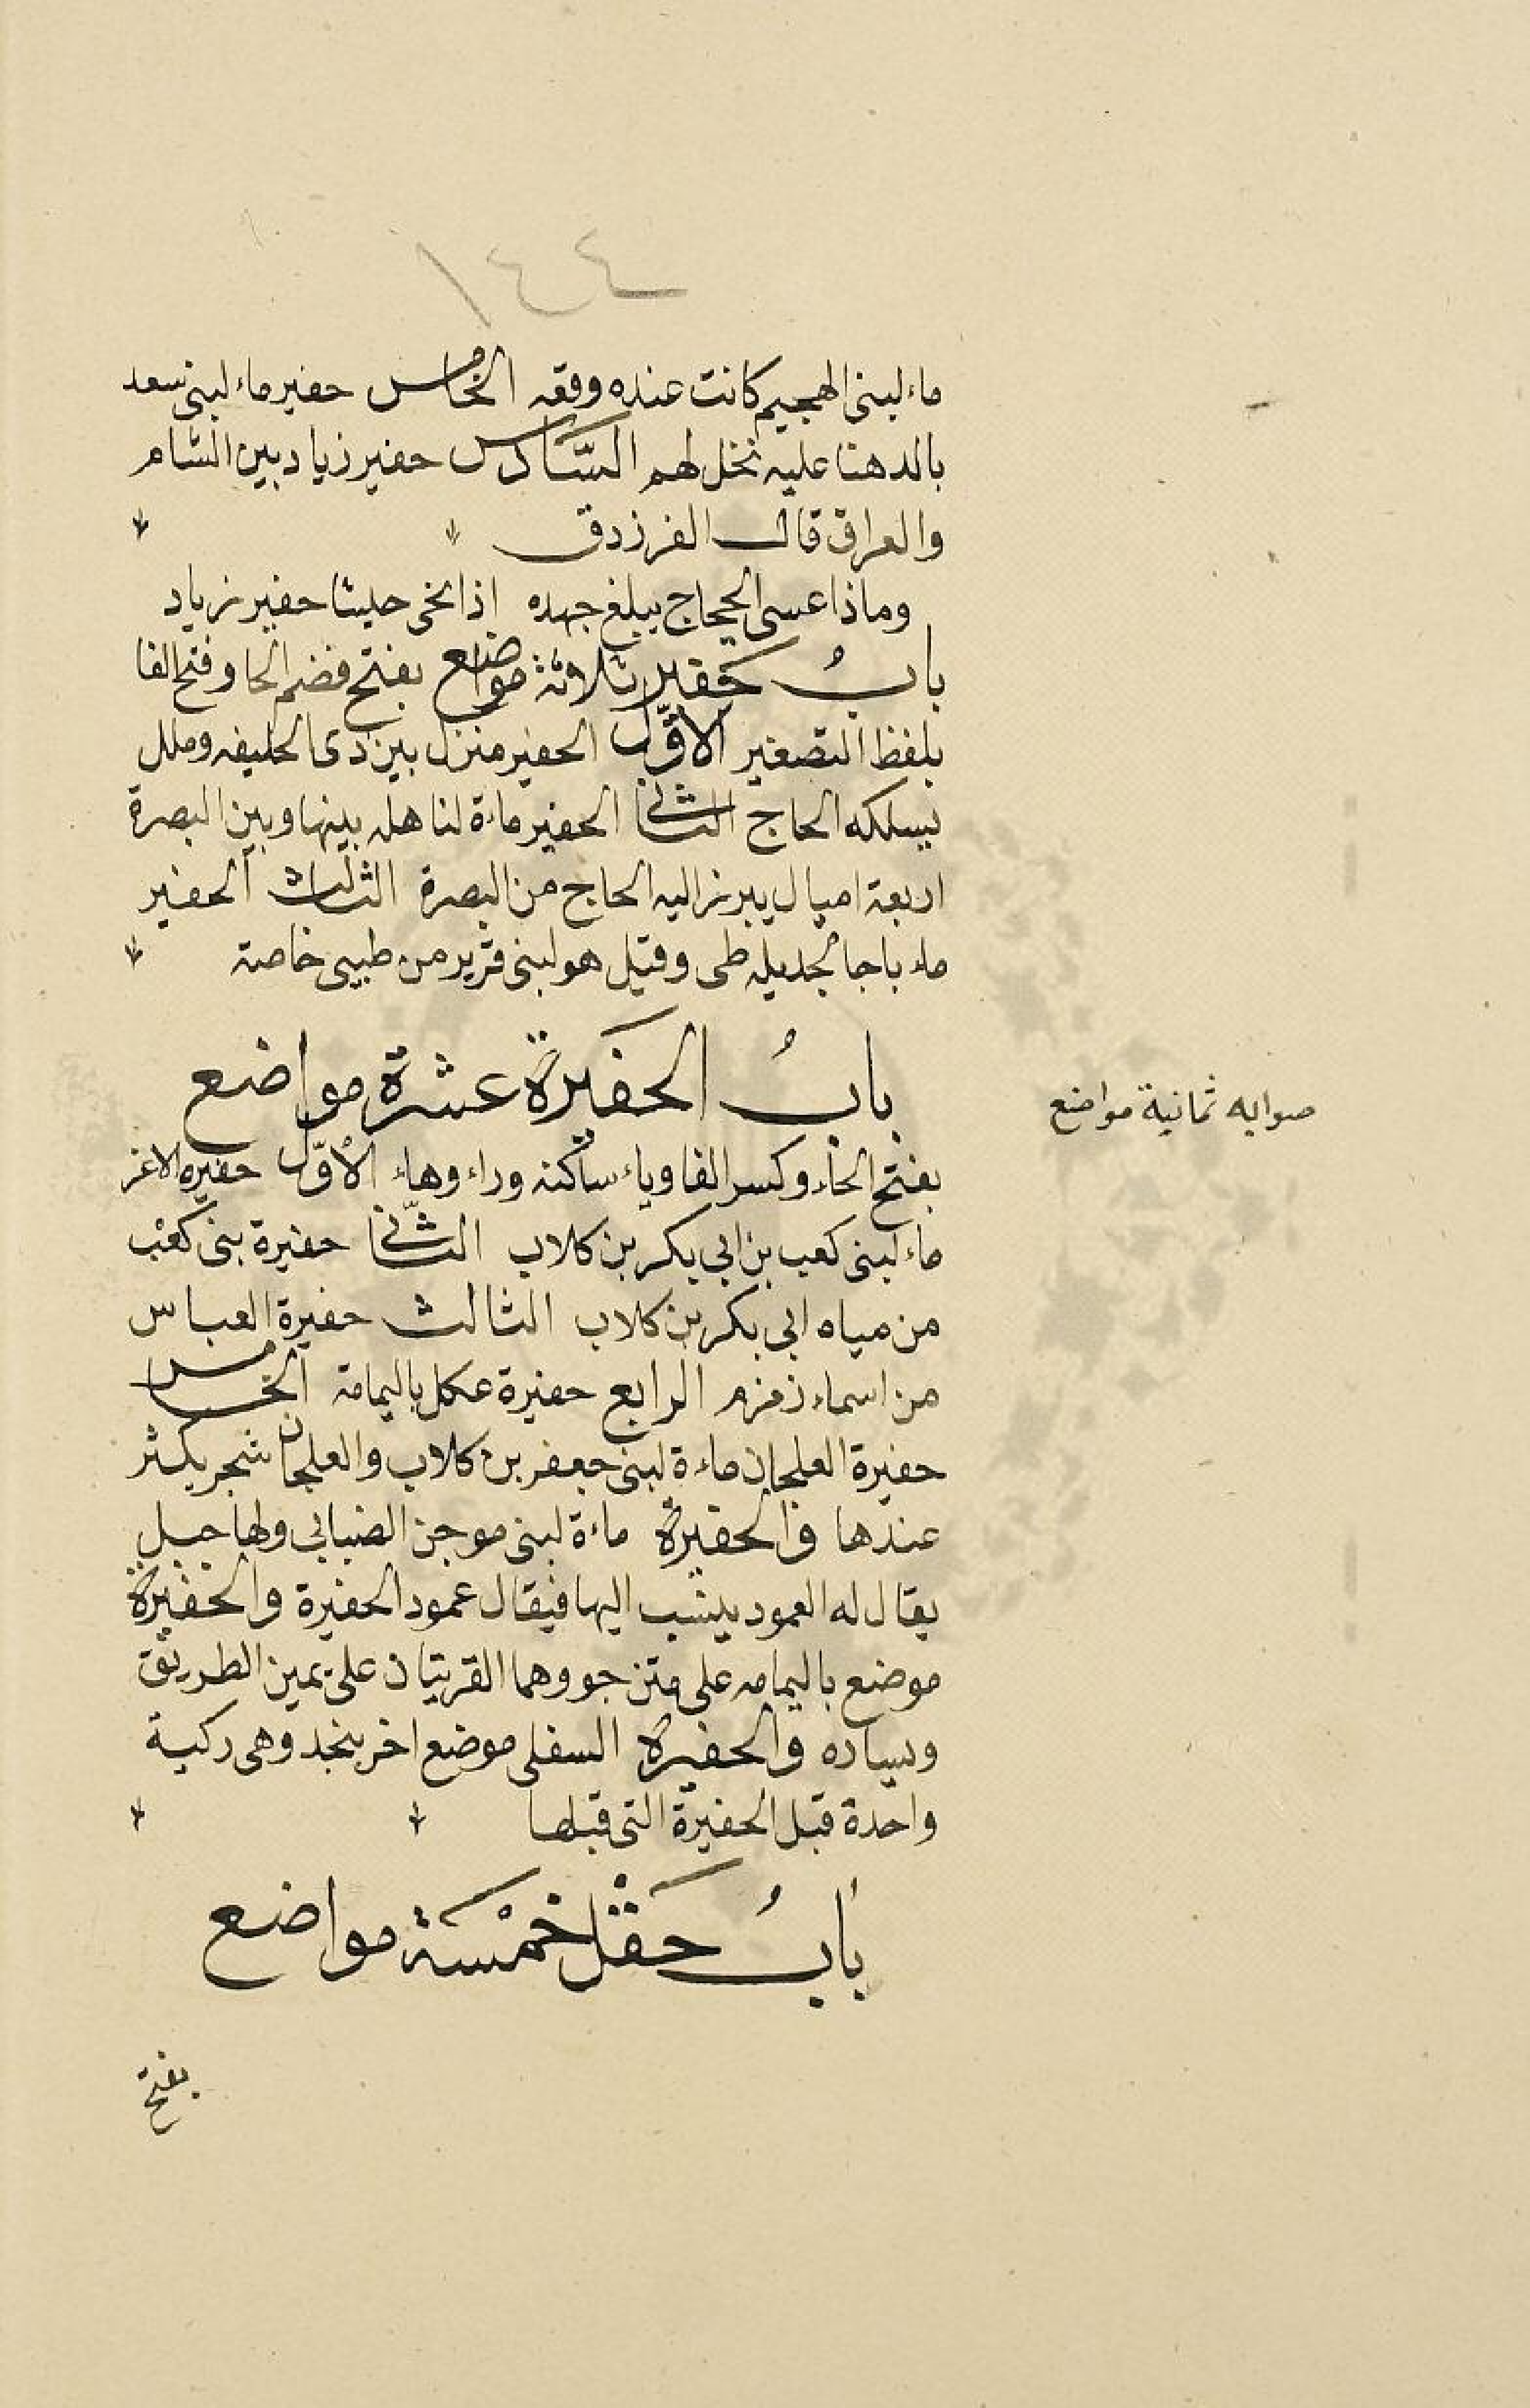 ١٤٤
ماء لبنى الهجيم كانت عنده وقعه الخامس حفير ماء لبنى سعد
بالدهنا عليه نخل لهم السّادس حفير زياد بين الشام
والعراق قال الفرزدق
وماذا عسى الحجاج يبلغ جهده اذا نحى حليثا حفير زياد
بابُ حفير ثلاثة مواضع بفتح فضم الحا وفتح الفا
بلفظ التصغير الأوّل الحفير منزل بين ذى الحليفه وملل
يسلكه الحاج الثانى الحفير ماءة لناهله بينها وبين البصرة
اربعة اميال يبرز اليه الحاج من البصرة الثالث الحفير
ماء باجا لجديله طى وقيل هو لبنى قرير من طيى خاصة
بابُ الحفَيرة عشرة مواضع
صوابه ثمانية مواضع
بفتح الحاء وكسر الفا وياء ساكنه وراء وهاء الأوّل حفيره الاغر
ماء لبنى كعب بن ابي بكر بن كلاب الثّانى حفيرة بنى كعب
من مياه ابى بكر بن كلاب الثالث حفيرة العباس
من اسماء زمزم الرابع حفيرة عكل باليمامة الخامس
حفيرة العلجان ماءة لبنى جعفر بن كلاب والعلجان شجر يكثر
عندها والحفيرة ماءة لبنى موجن الضبابي ولها جبل
يقال له العمود ينسب اليها فيقال عمود الحفيرة والحفيرة
موضع باليمامه على متن جو وهما القريتان على يمين الطريق
ويساره والحفيره السفلى موضع اخر بنجد وهى ركية
واحدة قبل الحفيرة التى قبلها
بابُ حَقْل خمْسَة مواضع
بفتح